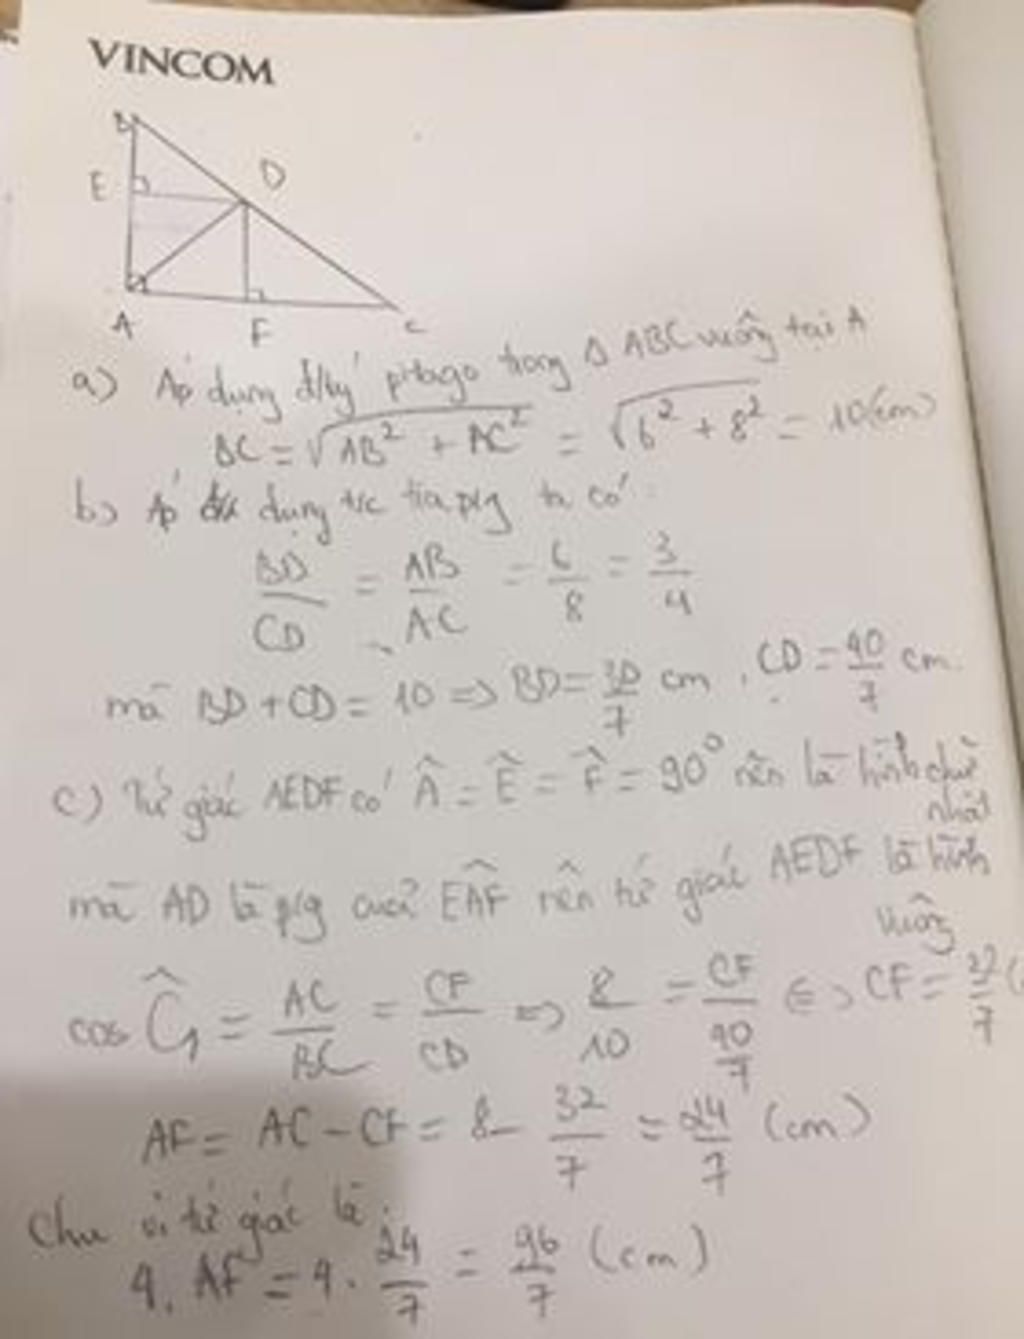 VINCOM
B
E
D
A
F
C
a) Áp dụng đ/lý pitago trong Δ ABC vuông tại A
BC = √AB² + AC² = √6² + 8² = 10(cm)
b) Áp dụng t/c tia p/g ta có:
BD/CD = AB/AC = 6/8 = 3/4
mà BD + CD = 10 => BD = 30/7 cm, CD = 40/7 cm.
c) Tứ giác AEDF có Â = Ê = F̂ = 90° nên là hình chữ
nhật
mà AD là p/g của EAF nên tứ giác AEDF là hình
vuông
cos Ĉ₁ = AC/BC = CF/CD => 8/10 = CF/(40/7) <=> CF = 32/7 (
AF = AC - CF = 8 - 32/7 = 24/7 (cm)
Chu vi tứ giác là:
4. AF = 4. 24/7 = 96/7 (cm)